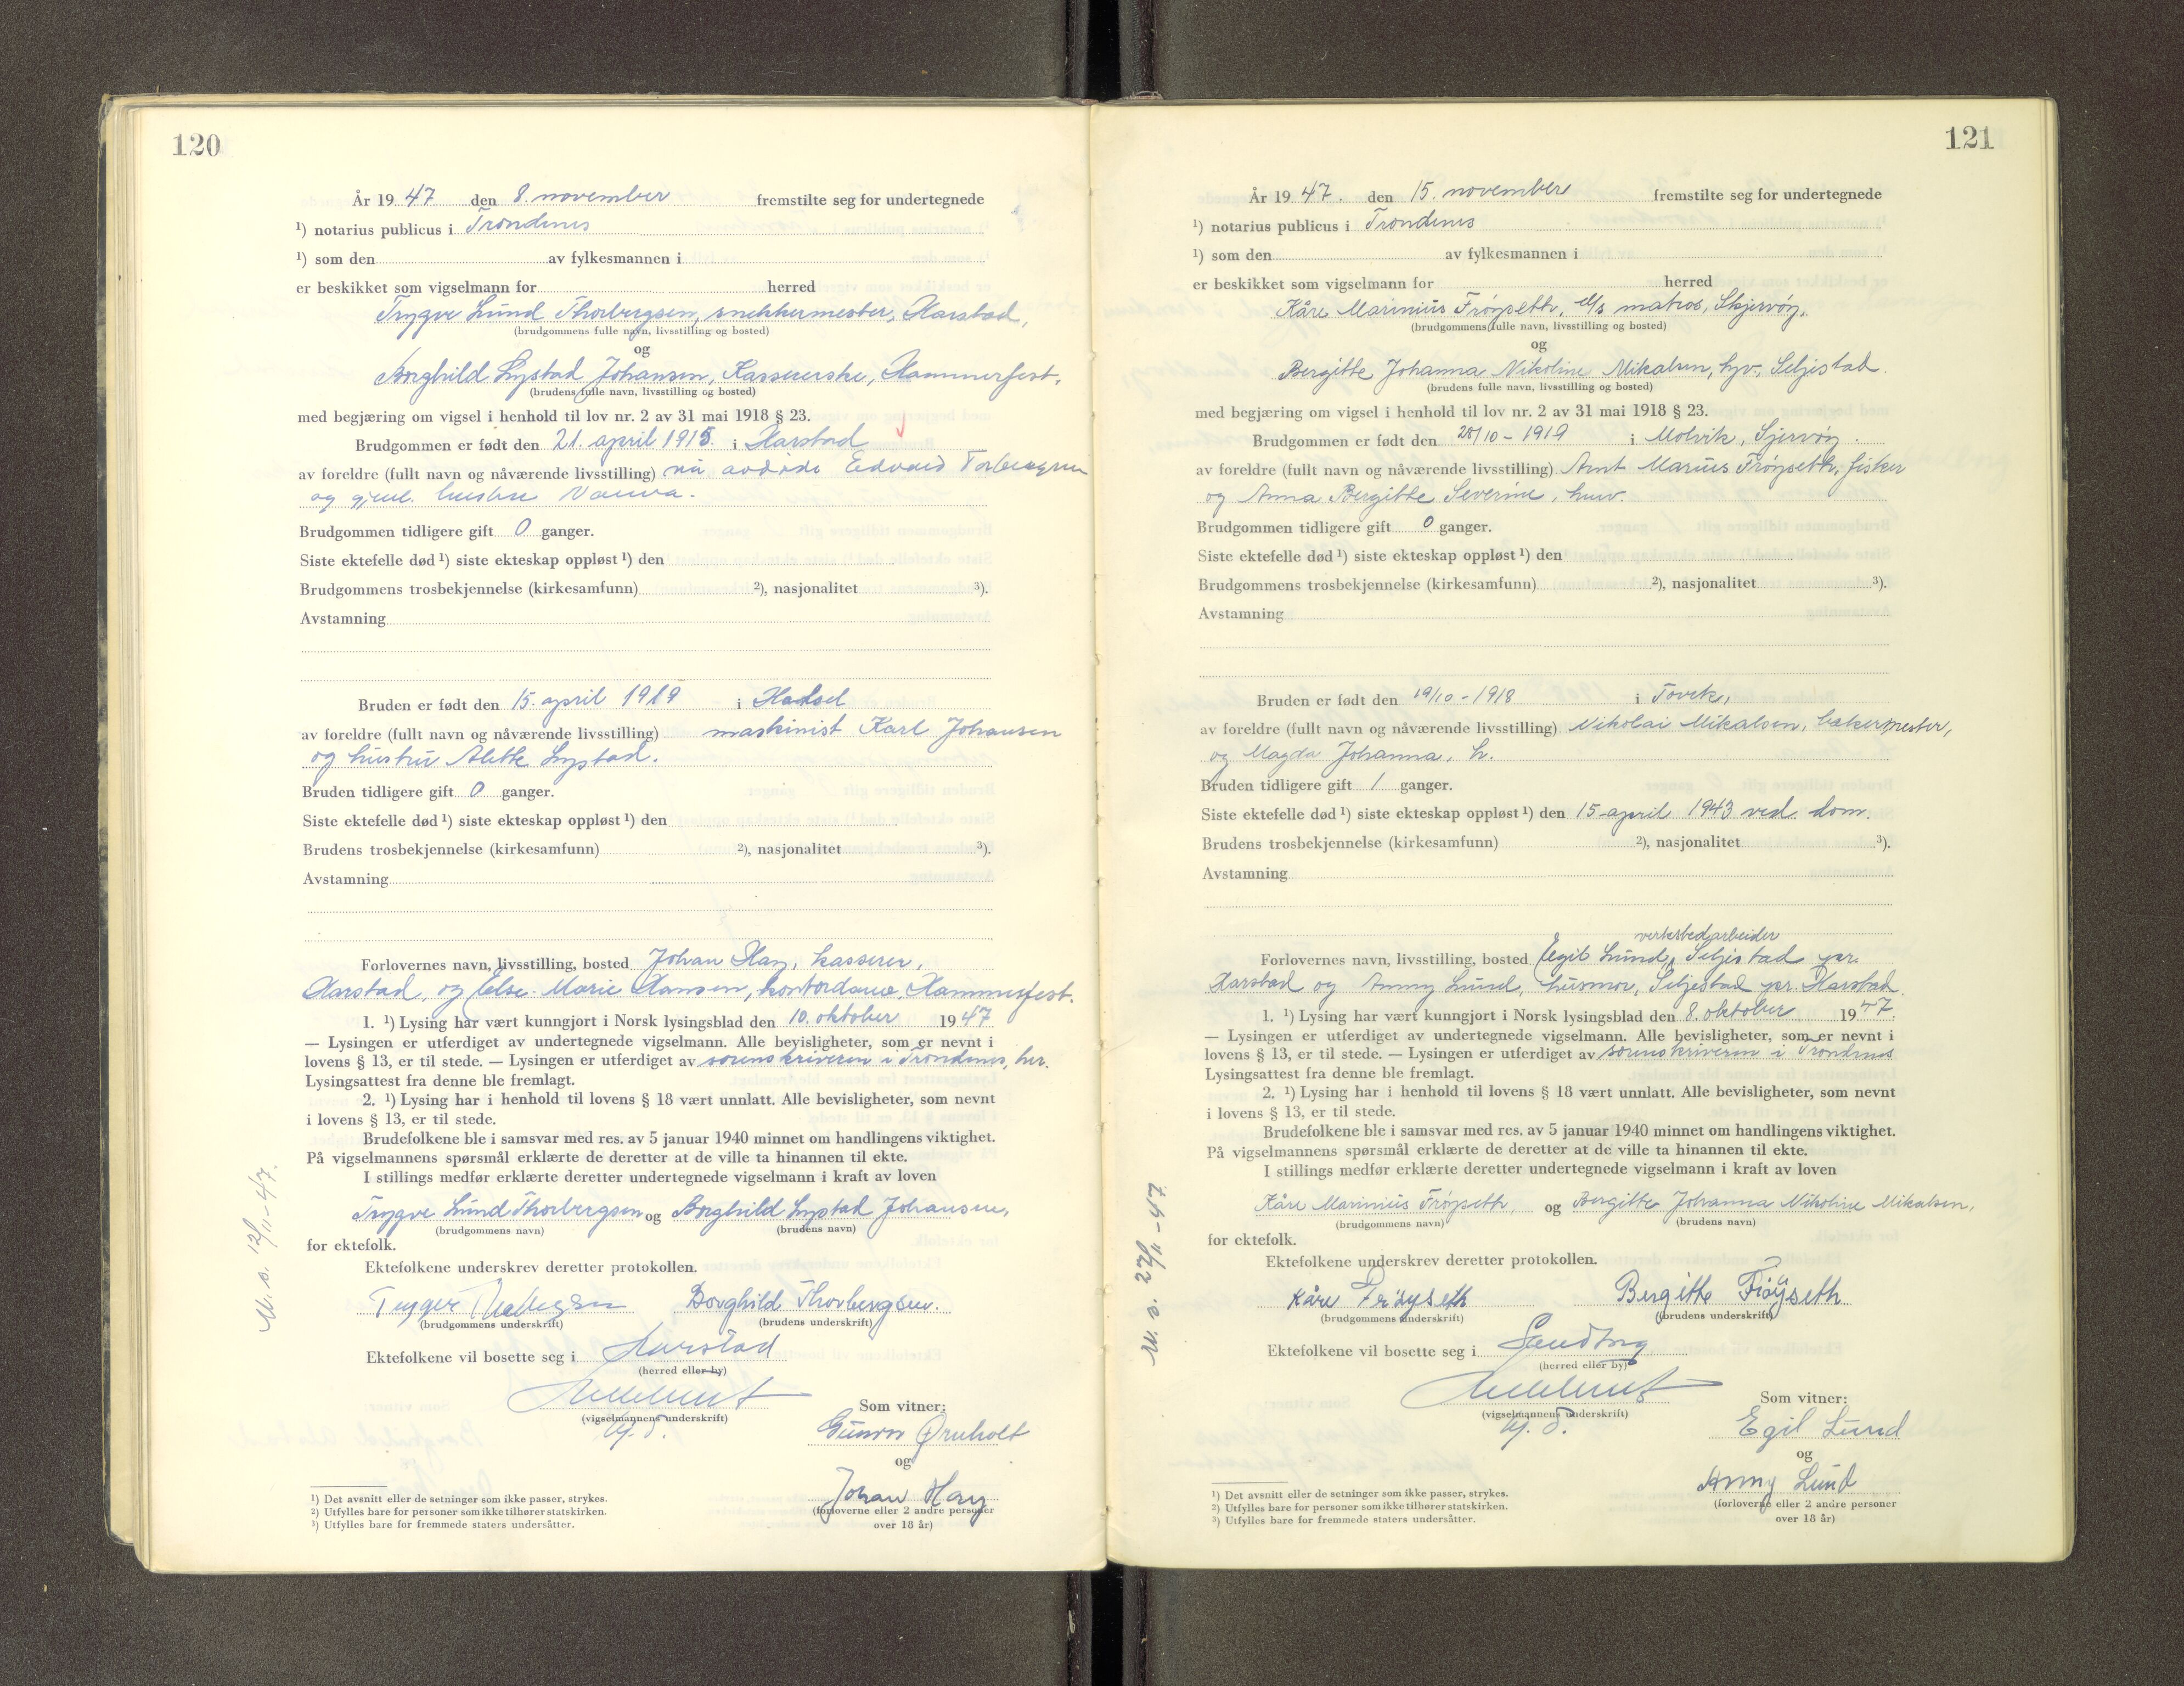 120
År 19 47 den 8. november fremstilte seg for undertegnede
¹) notarius publicus i Trondenes
¹) som den av fylkesmannen i
er beskikket som vigselmann for herred
Trygve Lund Thorbergsen, snekkermester, Harstad,
(brudgommens fulle navn, livsstilling og bosted)
og
Borghild Lystad Johansen, Kassererske, Hammerfest,
(brudens fulle navn, livsstilling og bosted)
med begjæring om vigsel i henhold til lov nr. 2 av 31 mai 1918 § 23.
Brudgommen er født den 21. april 1915. i Harstad
av foreldre (fullt navn og nåværende livsstilling) nå avdøde Edvard Torbergsen
og gjenl. hustru
Brudgommen tidligere gift 0 ganger.
Siste ektefelle død ¹) siste ekteskap oppløst ¹) den
Brudgommens trosbekjennelse (kirkesamfunn) ²), nasjonalitet ³).
Avstamning
Bruden er født den 15. april 1919 i Hadsel
av foreldre (fullt navn og nåværende livsstilling) maskinist Karl Johansen
og hustru Alette Lystad.
Bruden tidligere gift 0 ganger.
Siste ektefelle død ¹) siste ekteskap oppløst ¹) den
Brudens trosbekjennelse (kirkesamfunn) ²), nasjonalitet ³).
Avstamning
Forlovernes navn, livsstilling, bosted Johan Hay, kasserer,
Harstad, og Else-Marie Hansen, kontordame, Hammerfest.
1. ¹) Lysing har vært kunngjort i Norsk lysingsblad den 10. oktober 1947
— Lysingen er utferdiget av undertegnede vigselmann. Alle bevisligheter, som er nevnt i
lovens § 13, er til stede. — Lysingen er utferdiget av sorenskriveren i Trondenes, her.
Lysingsattest fra denne ble fremlagt.
2. ¹) Lysing har i henhold til lovens § 18 vært unnlatt. Alle bevisligheter, som nevnt
i lovens § 13, er til stede.
Brudefolkene ble i samsvar med res. av 5 januar 1940 minnet om handlingens viktighet.
På vigselmannens spørsmål erklærte de deretter at de ville ta hinannen til ekte.
I stillings medfør erklærte deretter undertegnede vigselmann i kraft av loven
Trygve Lund Thorbergsen og Borghild Lystad Johansen,
(brudgommens navn) (brudens navn)
for ektefolk.
Ektefolkene underskrev deretter protokollen.
Borghild Thorbergsen.
(brudgommens underskrift) (brudens underskrift)
Ektefolkene vil bosette seg i Harstad
(herred eller by)
(vigselmannens underskrift)
Som vitner:
Gunvor Ørnholt
og
Johan Hay
(forloverne eller 2 andre personer
over 18 år)
M. s. 12/11-47.
¹) Det avsnitt eller de setninger som ikke passer, strykes.
²) Utfylles bare for personer som ikke tilhører statskirken.
³) Utfylles bare for fremmede staters undersåtter.
121
År 19 47. den 15. november fremstilte seg for undertegnede
¹) notarius publicus i Trondenes
¹) som den av fylkesmannen i
er beskikket som vigselmann for herred
Kåre Marinius Frøyseth, m/s matros, Skjervøy,
(brudgommens fulle navn, livsstilling og bosted)
og
Bergitte Johanna Nikoline Mikalsen, hjv., Seljestad.
(brudens fulle navn, livsstilling og bosted)
med begjæring om vigsel i henhold til lov nr. 2 av 31 mai 1918 § 23.
Brudgommen er født den 28/10-1919 i Molvik, Sjervøy.
av foreldre (fullt navn og nåværende livsstilling) Arnt Marius Frøyseth, fisker
og Anna Bergitte Severine, husv.
Brudgommen tidligere gift 0 ganger.
Siste ektefelle død ¹) siste ekteskap oppløst ¹) den
Brudgommens trosbekjennelse (kirkesamfunn) ²), nasjonalitet ³).
Avstamning
Bruden er født den 19/10-1918 i Tovik,
av foreldre (fullt navn og nåværende livsstilling) Nikolai Mikalsen, bakermester,
og Magda Johanna, h.
Bruden tidligere gift 1 ganger.
Siste ektefelle død ¹) siste ekteskap oppløst ¹) den 15. april 1943 ved dom.
Brudens trosbekjennelse (kirkesamfunn) ²), nasjonalitet ³).
Avstamning
verkstedarbeider
Forlovernes navn, livsstilling, bosted Egil Lund, Seljestad pr.
Harstad og Anny Lund, husmor, Seljestad pr. Harstad
1. ¹) Lysing har vært kunngjort i Norsk lysingsblad den 8. oktober 1947.
— Lysingen er utferdiget av undertegnede vigselmann. Alle bevisligheter, som er nevnt i
lovens § 13, er til stede. — Lysingen er utferdiget av sorenskriveren i Trondenes
Lysingsattest fra denne ble fremlagt.
2. ¹) Lysing har i henhold til lovens § 18 vært unnlatt. Alle bevisligheter, som nevnt
i lovens § 13, er til stede.
Brudefolkene ble i samsvar med res. av 5 januar 1940 minnet om handlingens viktighet.
På vigselmannens spørsmål erklærte de deretter at de ville ta hinannen til ekte.
I stillings medfør erklærte deretter undertegnede vigselmann i kraft av loven
Kåre Marinius Frøyseth, og Bergitte Johanna Nikoline Mikalsen,
(brudgommens navn) (brudens navn)
for ektefolk.
Ektefolkene underskrev deretter protokollen.
Kåre Frøyseth Bergitte Frøyseth
(brudgommens underskrift) (brudens underskrift)
Ektefolkene vil bosette seg i Sandtorg
(herred eller by)
(vigselmannens underskrift)
Som vitner:
Egil Lund
og
Anny Lund
(forloverne eller 2 andre personer
over 18 år)
M. s. 27/11-47.
¹) Det avsnitt eller de setninger som ikke passer, strykes.
²) Utfylles bare for personer som ikke tilhører statskirken.
³) Utfylles bare for fremmede staters undersåtter.